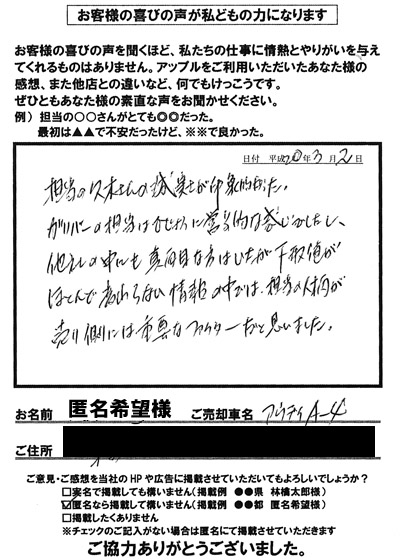 お客様の喜びの声が私どもの力になります
お客様の喜びの声を聞くほど、私たちの仕事に情熱とやりがいを与え
てくれるものはありません。アップルをご利用いただいたあなた様の
感想、また他店との違いなど、何でもけっこうです。
ぜひともあなた様の素直な声をお聞かせください。
例）担当の○○さんがとても◎◎だった。
最初は▲▲で不安だったけど、※※で良かった。
日付 平成20年3月2日
担当の久木さんの誠実さが印象的だった。
ガリバーの担当は 営業的な感じがしたし、
他社の中にも真面目な方はいたが下取値が
ほとんど変わらない情報の中では、担当の人柄が
売り側には重要なファクターだと思いました。
お名前 匿名希望様 ご売却車名 アウディA-4
ご住所
ご意見・ご感想を当社のHPや広告に掲載させていただいてもよろしいでしょうか？
□実名で掲載しても構いません（掲載例 ●●県 林檎太郎様）
☑匿名なら掲載して構いません（掲載例 ●●都 匿名希望様）
□掲載したくありません
※チェックのご記入がない場合は匿名にて掲載させていただきます
ご協力ありがとうございました。